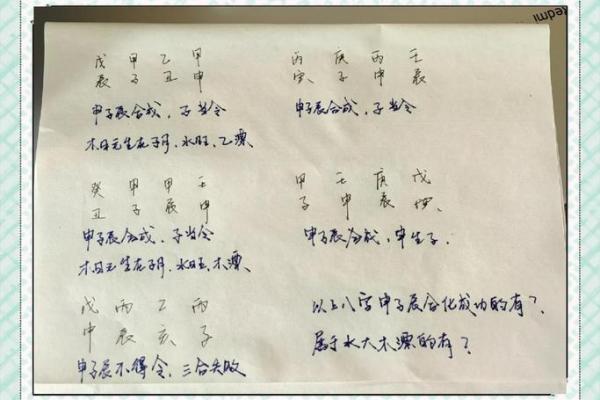 戊 甲 乙 甲
辰 子 丑 申
申子辰合成，子当令
木日元生在子月，水旺，乙漂。
丙 庚 丙 壬
寅 子 申 辰
申子辰合成，子当令
癸 甲 甲 壬
丑 子 辰 申
申子辰合成，子当令
木日元生在子月，水旺，木漂、
甲 壬 庚 戊
子 申 辰
申子辰合成，申生子．
戊 丙 乙 丙
申 辰 亥 子
申子辰不得令，三合失败
以上八字申子辰合化成功的有？
属于水大木漂的有？
Redmi